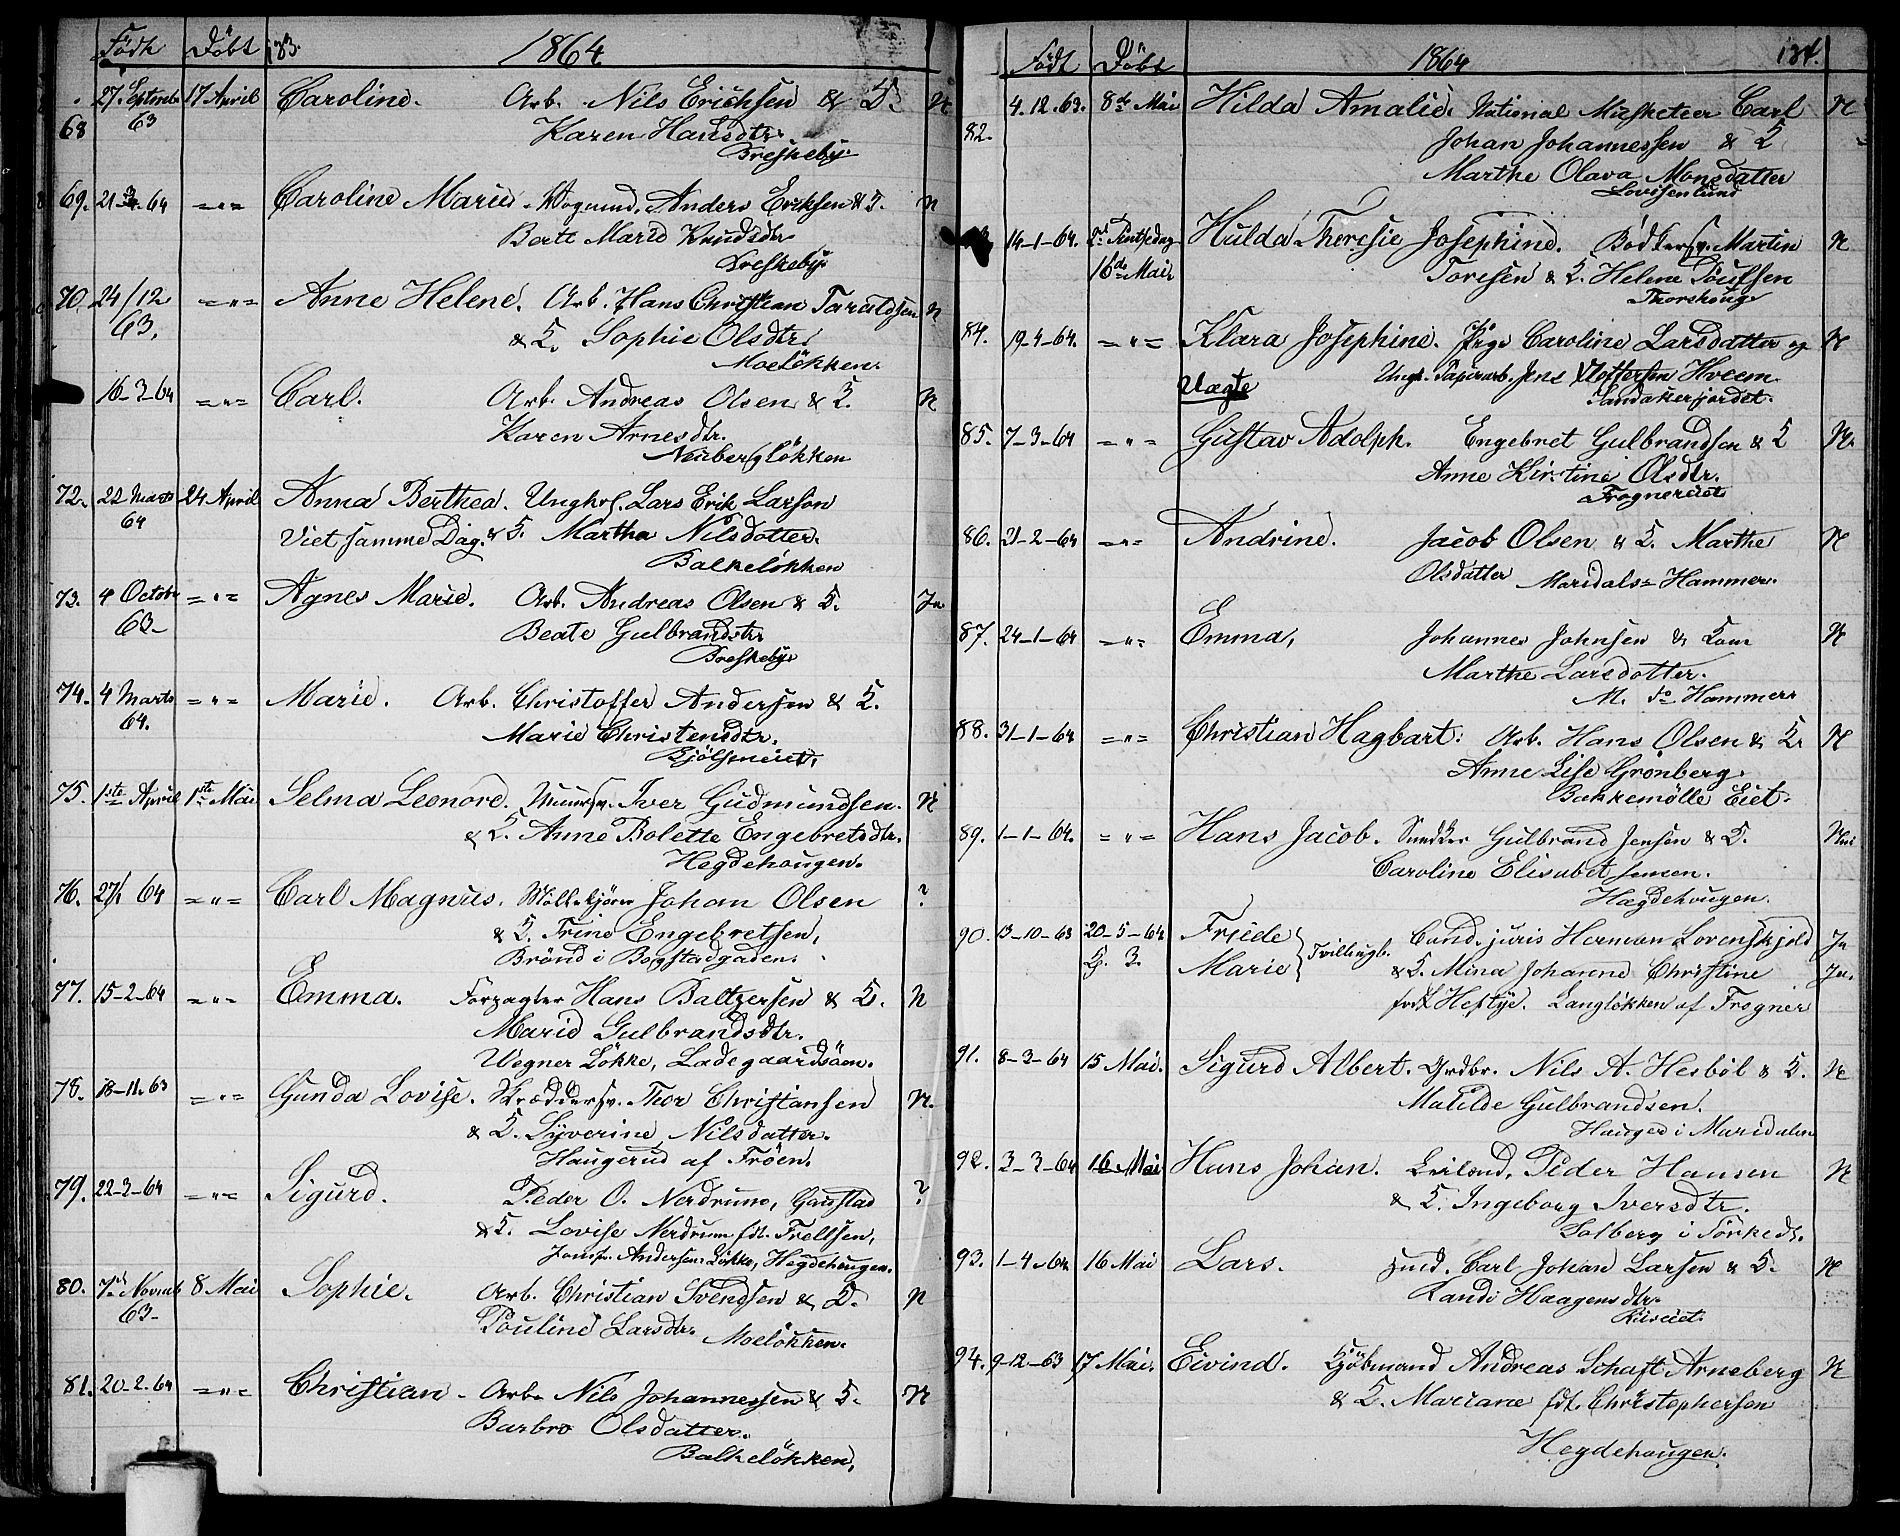 Født Døbt 133. 1864
68 27. Septemb 63 17 April Caroline. Arb. Nils Erichsen & K. N
Karen Hansdtr.
Breskeby.
69. 21-3-64 -"- Caroline Marie. Vognmd. Anders Eriksen & K. N
Berte Marie Knudsdtr
Breskeby.
70. 24/12 63. -"- Anne Helene. Arb. Hans Christian Taraldsen N
& K. Sophie Olsdtr.
Moeløkken.
16-3-64 -"- Carl. Arb. Andreas Olsen & K. N
Karen Arnesdtr.
Neubergløkken
72. 22 Marts 64 24 April Anna Berthea. Ungkl. Lars Erik Larson
Viet samme Dag. & K. Martha Nilsdotter.
Balkeløkken
73. 4 Octobr 63- -"- Agnes Marie. Arb. Andreas Olsen & K. Ja
Beate Gulbrandsdtr
Breskeby.
74. 4 Marts 64. -"- Marie. Arb. Christoffer Andersen & K.
Marie Christensdtr.
Bjølseneiet.
75. 1ste April 1ste Mai Selma Leonore. Muursv. Iver Gudmundsen. N
& K. Anne Bolette Engebretsdtr.
Hegdehougen.
76. 27/1 64 -"- Carl Magnus. Johan Olsen ?
& K. Trine Engebretsen,
Brønd i Bogstadgaden.
77. 15-2-64 -"- Emma. Forpagter Hans Baltzersen & K. N
Marie Gulbrandsdtr.
Wegner Løkke, Ladegaardsøen.
78. 18-11-63 -"- Gunda Lovise. Skræddersv. Thor Christiansen N.
& K. Syverine Nilsdatter.
Haugerud af Frøen.
79. 22-3-64 -"- Sigurd. Peder O. Nerdrum, Gaustad ?
& K. Lovise Nerdrum fdt. Frellsen,
Jomfr. Andersens Løkke, Hegdehougen.
80. 7de Novemb 63- 8 Mai Sophie. Arb. Christian Svendsen & K. N
Pouline Larsdtr. Moeløkken.
81. 20-2-64 -"- Christian. Arb. Nils Johannessen & K. N
Barbro Olsdatter.
Balkeløkken,
Født Døbt 1864 134.
82. 4-12-63. 8de Mai Hilda Amalie. National Musketeer Carl N
Johan Johannessen & K
Marthe Olava Monsdatter
Lovisenlund
14-1-64. 2d Pintsedag 16de Mai Hulda Theresie Josephine. Bødkersv. Martin N
Toresen & K. Helene
Thorshoug
84. 19-4-64. -"- Klara Josephine. Pige Caroline Larsdatter og N
Uægte Ungk. Papirarb. Jens Hveem
Sandakerjordet.
85. 7-3-64 -"- Gustav Adolph. Engebret Gulbrandsen & K N.
Anne Kirstine Olsdtr.
Frognereiet
86. 21-2-64 -"- Andrine. Jacob Olsen & K. Marthe N
Olsdatter Maridals-Hammer.
87. 24-1-64 -"- Emma, Johannes Johnsen & Kone N
Marthe Larsdotter.
M. do Hammer
88. 31-1-64 -"- Christian Hagbart. Arb. Hans Olsen & K. N
Anne Lise Grønberg.
Bakkemølle Eiet.
89. 1-1-64. -"- Hans Jacob. Snedker Gulbrand Jensen & K. Nei
Caroline Elisabet Jensen.
Hægdehougen.
90. 13-10-63 20-5-64 Friede Tvillingb. Cand. juris Herman Løvenskjold Ja
K. 3. Marie & K. Mina Johanne Christine Ja.
født Heftye. Langløkken af Frogner
91. 8-3-64 15 Mai. Sigurd Albert. Grdbr. Nils A. Hesbøl & K. N
Matilde Gulbrandsen.
Hauger i Maridalen
92. 3-3-64 16 Mai Hans Johan. Leilend. Peder Hansen N
& K. Ingeborg Iversdtr.
Solberg i Sørkedl.
93. 1-4-64 16 Mai Lars. Carl Johan Larsen & K. N
Randi Haagensdtr.
Riiseiet.
94. 9-12-63 17 Mai. Eivind. Kjøbmand Andreas Schaft Arneberg N
& K. Mariane fdt. Christophersen
Hegdehougen.